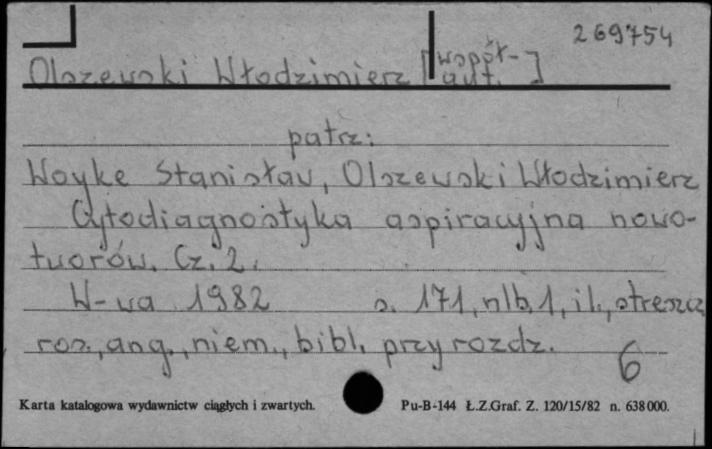 269754
Olszewski Włodzimierz [współ-
aut.]
patrz:
Woyke Stanisław, Olszewski Włodzimierz
Cytodiagnostyka aspiracyjna nowo-
tworów. Cz. 2.
W-wa 1982 s. 171, nlb. 1, il., streszcz.
ros., ang., niem., bibl. przy rozdz.
6
Karta katalogowa wydawnictw ciągłych i zwartych. Pu-B-144 Ł.Z.Graf. Z. 120/15/82 n. 638000.